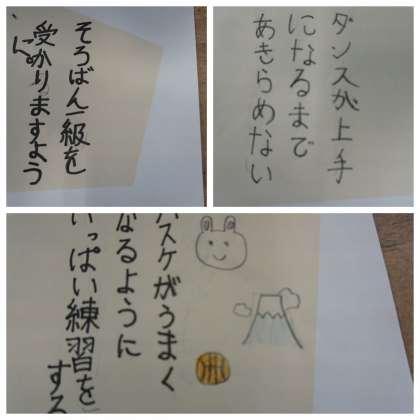 そろばん一級を
受かりますよう
ダンスが上手
になるまで
あきらめない
バスケがうまく
なるように
いっぱい練習を
する